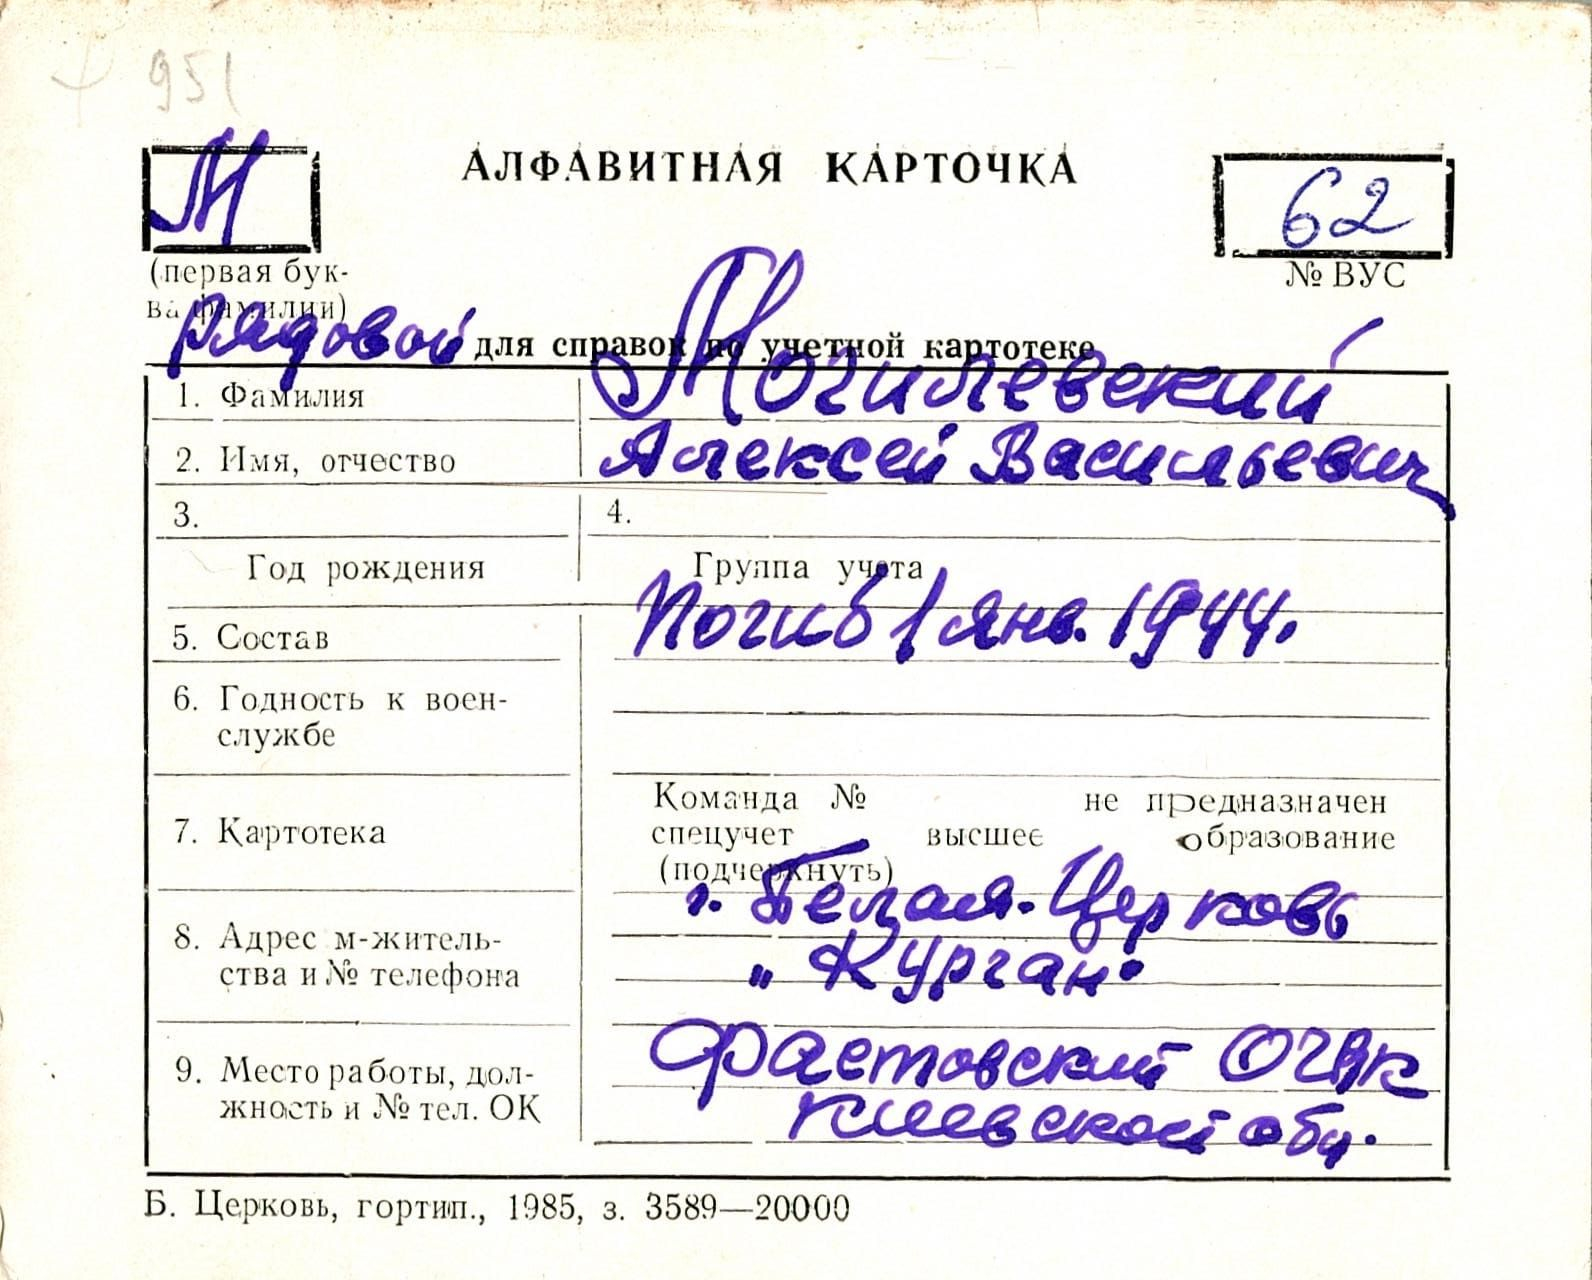 951
М
АЛФАВИТНАЯ КАРТОЧКА
62
(первая бук-
ва фамилии)
№ ВУС
рядовой для справок по учетной картотеке
1. Фамилия Могилевский
2. Имя, отчество Алексей Васильевич
3. 4.
Год рождения Группа учета
5. Состав Погиб 1 янв. 1944.
6. Годность к воен-
службе
Команда № не предназначен
7. Картотека спецучет высшее образование
(подчеркнуть)
г. Белая-Церковь
8. Адрес м-житель-
ства и № телефона
„ Курган.
Фастовский ОГВК
9. Место работы, дол-
жность и № тел. ОК
Киевской обл.
Б. Церковь, гортип., 1985, з. 3589—20000